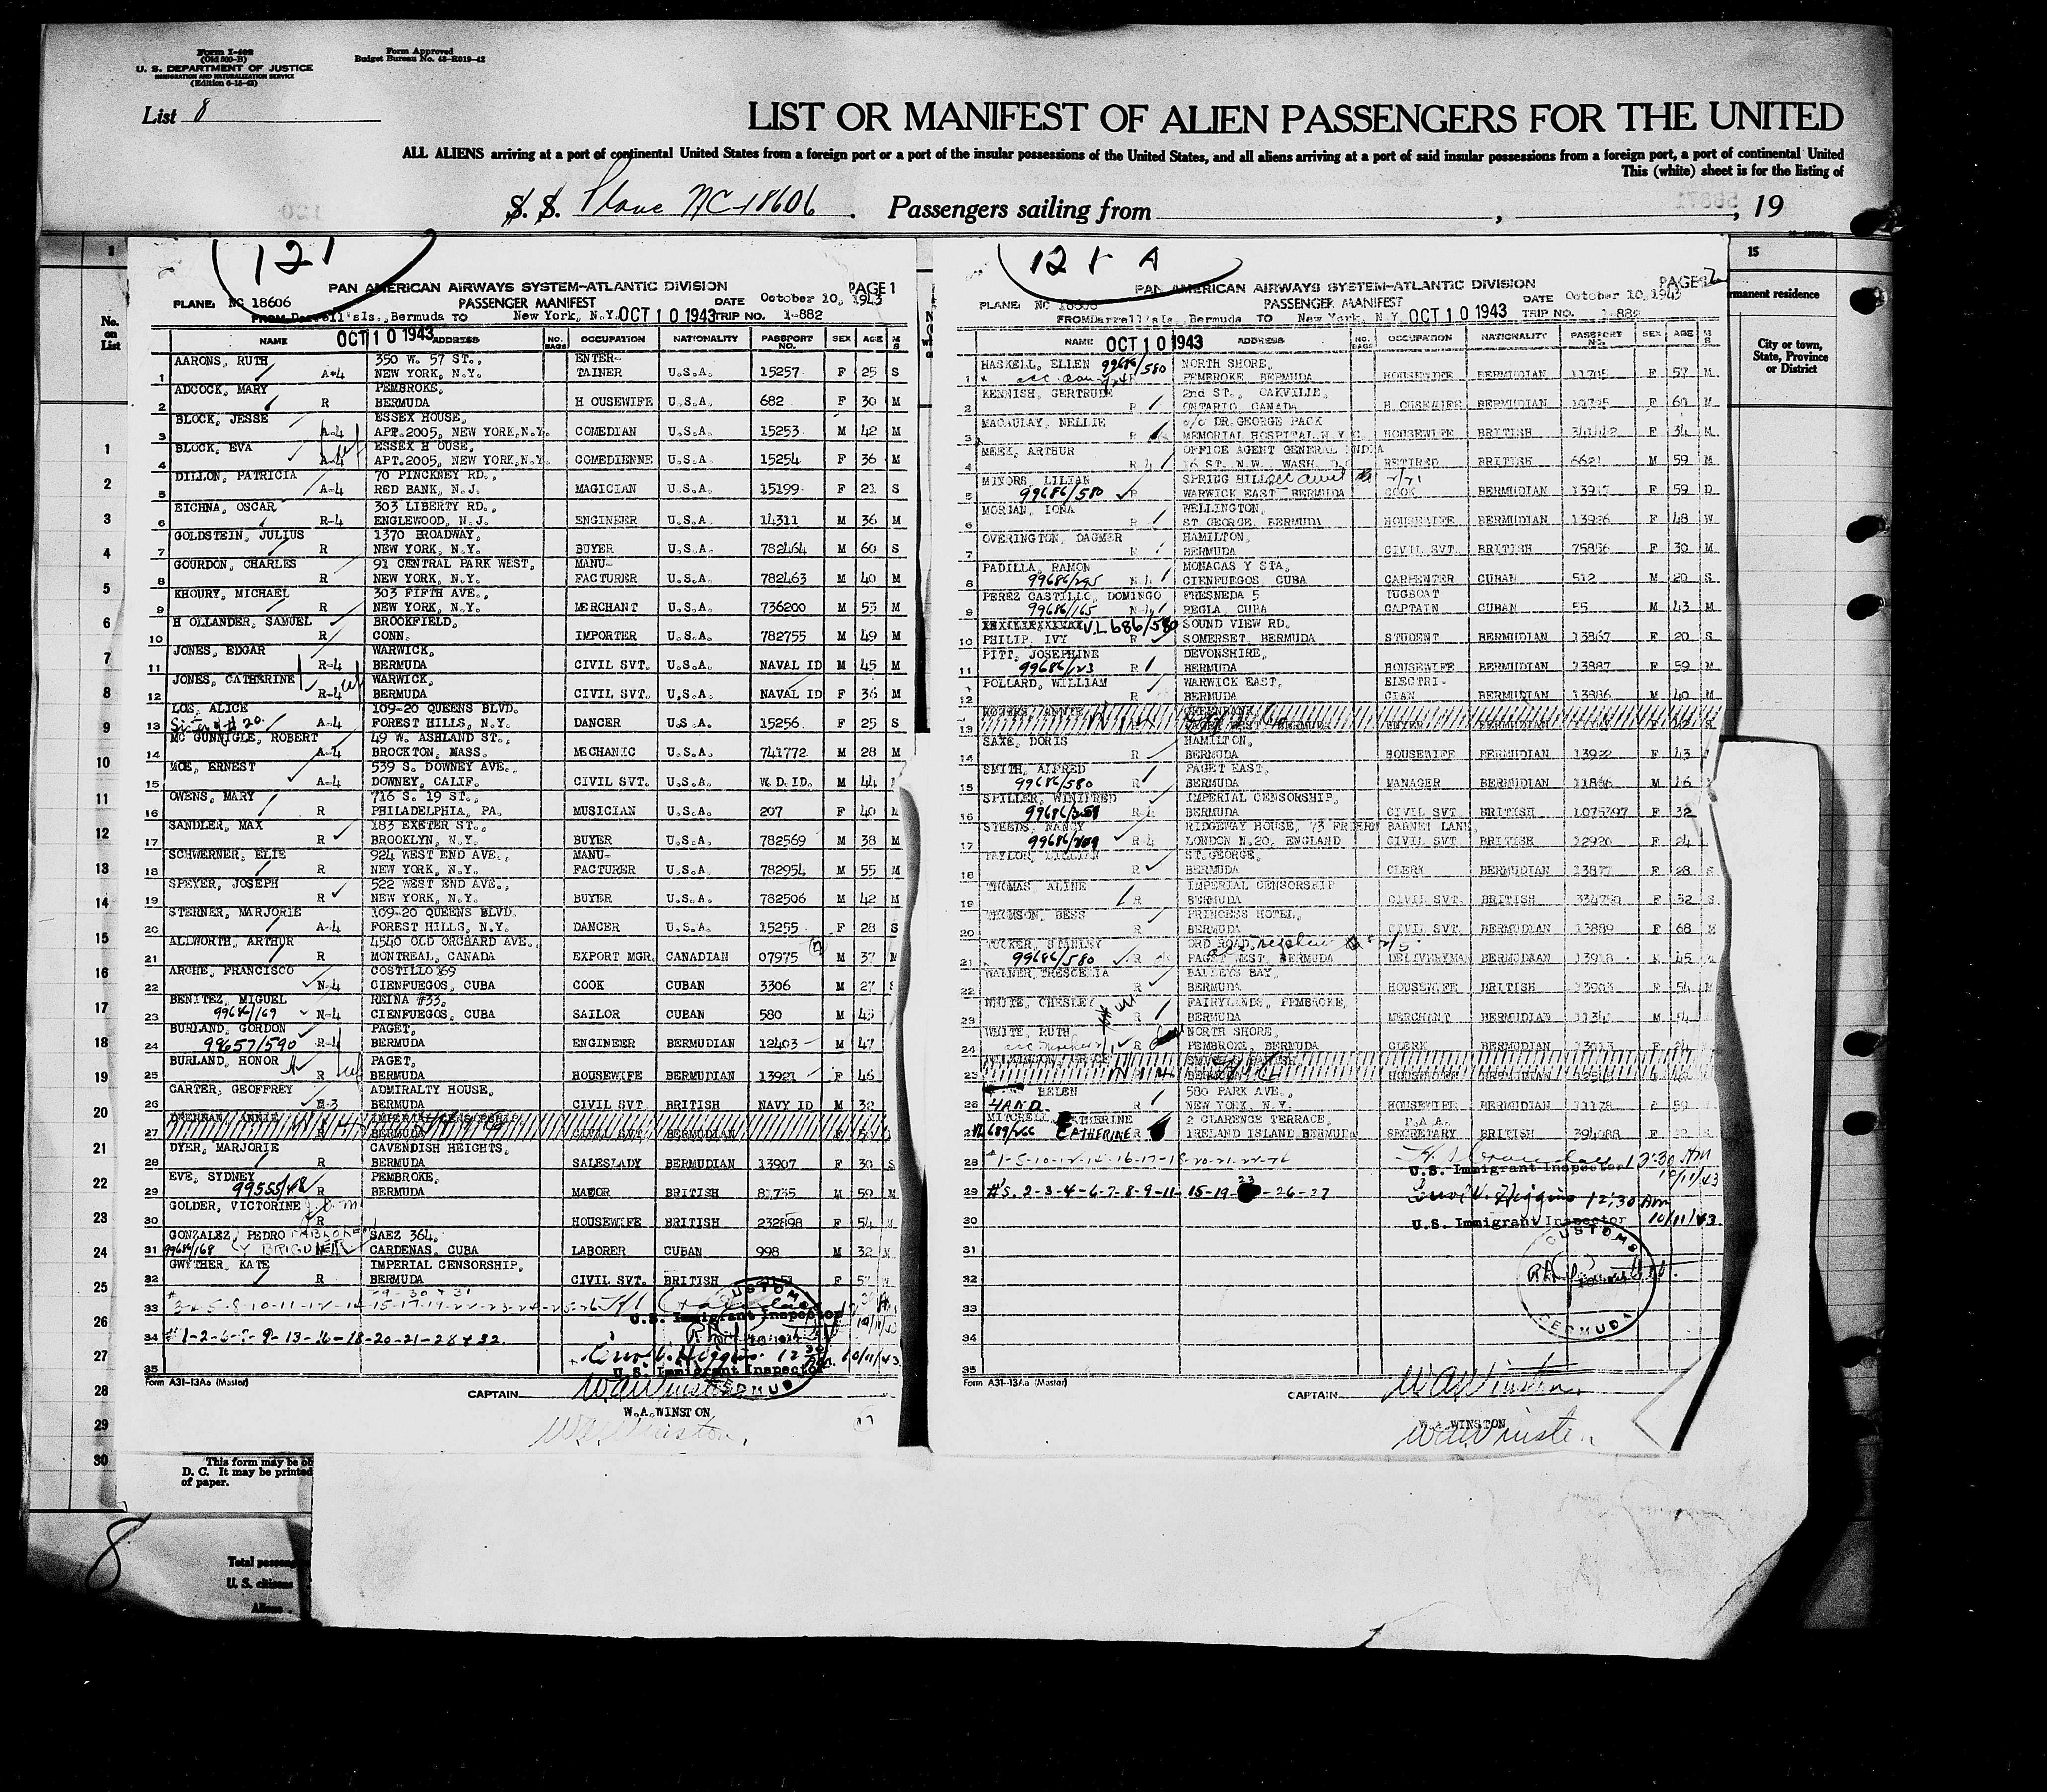 Form I-402
(Old 500-B)
U. S. DEPARTMENT OF JUSTICE
IMMIGRATION AND NATURALIZATION SERVICE
(Edition 6-15-43)
Form Approved
Budget Bureau No. 43-R019-42
List 8
LIST OR MANIFEST OF ALIEN PASSENGERS FOR THE UNITED
ALL ALIENS arriving at a port of continental United States from a foreign port or a port of the insular possessions of the United States, and all aliens arriving at a port of said insular possessions from a foreign port, a port of continental United
This (white) sheet is for the listing of
S. S. Plane NC-18606. Passengers sailing from , , 19
121
PAN AMERICAN AIRWAYS SYSTEM-ATLANTIC DIVISION PAGE 1
PLANE: NC 18606 PASSENGER MANIFEST DATE October 10, 1943
FROM Darrell's Is., Bermuda TO New York, N.Y. OCT 10 1943 TRIP NO. 1-882
OCT 10 1943
NAME ADDRESS NO. BAGS OCCUPATION NATIONALITY PASSPORT NO. SEX AGE M S
AARONS, RUTH 350 W. 57 ST., ENTER-
1 A-4 NEW YORK, N.Y. TAINER U.S.A. 15257 F 25 S
ADCOCK, MARY PEMBROKE,
2 R BERMUDA H OUSEWIFE U.S.A. 682 F 30 M
BLOCK, JESSE ESSEX HOUSE,
3 A-4 APT.2005, NEW YORK,N.Y. COMEDIAN U.S.A. 15253 M 42 M
BLOCK, EVA ESSEX H OUSE,
4 A-4 APT.2005, NEW YORK,N.Y. COMEDIENNE U.S.A. 15254 F 36 M
DILLON, PATRICIA 70 PINCKNEY RD.,
5 A-4 RED BANK, N.J. MAGICIAN U.S.A. 15199 F 21 S
EICHNA, OSCAR 303 LIBERTY RD.,
6 R-4 ENGLEWOOD, N.J. ENGINEER U.S.A. 14311 M 36 M
GOLDSTEIN, JULIUS 1370 BROADWAY,
7 R NEW YORK, N.Y. BUYER U.S.A. 782464 M 60 S
GOURDON, CHARLES 91 CENTRAL PARK WEST, MANU-
8 R NEW YORK, N.Y. FACTURER U.S.A. 782463 M 40 M
KHOURY, MICHAEL 303 FIFTH AVE.,
9 R NEW YORK, N.Y. MERCHANT U.S.A. 736200 M 53 M
H OLLANDER, SAMUEL BROOKFIELD,
10 R CONN. IMPORTER U.S.A. 782755 M 49 M
JONES, EDGAR WARWICK,
11 R-4 BERMUDA CIVIL SVT. U.S.A. NAVAL ID M 45 M
JONES, CATHERINE WARWICK,
12 R-4 BERMUDA CIVIL SVT. U.S.A. NAVAL ID F 36 M
LOE, ALICE 109-20 QUEENS BLVD.
13 A-4 FOREST HILLS, N.Y. DANCER U.S.A. 15256 F 25 S
MC GUNNIGLE, ROBERT 49 W. ASHLAND ST.,
14 A-4 BROCKTON, MASS. MECHANIC U.S.A. 741772 M 28 M
MOE, ERNEST 539 S. DOWNEY AVE.,
15 A-4 DOWNEY, CALIF. CIVIL SVT. U.S.A. W.D.ID. M 44
OWENS, MARY 716 S. 19 ST.,
16 R PHILADELPHIA, PA. MUSICIAN U.S.A. 207 F 40
SANDLER, MAX 183 EXETER ST.,
17 R BROOKLYN, N.Y. BUYER U.S.A. 782569 M 38 M
SCHWERNER, ELIE 924 WEST END AVE., MANU-
18 R NEW YORK, N.Y. FACTURER U.S.A. 782954 M 55 M
SPEYER, JOSEPH 522 WEST END AVE.,
19 R NEW YORK, N.Y. BUYER U.S.A. 782506 M 42 M
STERNER, MARJORIE 109-20 QUEENS BLVD.
20 A-4 FOREST HILLS, N.Y. DANCER U.S.A. 15255 F 28 S
ALLWORTH, ARTHUR 4540 OLD ORCHARD AVE.,
21 R MONTREAL, CANADA EXPORT MGR. CANADIAN 07975 M 37
ARCHE, FRANCISCO COSTILLO 169
22 N-4 CIENFUEGOS, CUBA COOK CUBAN 3306 M 27
BENITEZ, MIGUEL REINA #33.
23 99686/169 N-4 CIENFUEGOS, CUBA SAILOR CUBAN 580 M 45
BURLAND, GORDON PAGET,
24 99657/590 R-4 BERMUDA ENGINEER BERMUDIAN 12403 M 47
BURLAND, HONOR PAGET,
25 R BERMUDA HOUSEWIFE BERMUDIAN 13921 F 46
CARTER, GEOFFREY ADMIRALTY HOUSE,
26 BERMUDA CIVIL SVT. BRITISH NAVY ID M 32
DRENNAN, ANNIE IMPERIAL CENSORSHIP,
27 BERMUDA CIVIL SVT. BERMUDIAN
DYER, MARJORIE CAVENDISH HEIGHTS,
28 R BERMUDA SALESLADY BERMUDIAN 13907 F 30 S
EVE, SYDNEY PEMBROKE,
29 R BERMUDA BRITISH 81735 M 59 M
GOLDER, VICTORINE
30 R HOUSEWIFE BRITISH 232898 F 54 M
GONZALEZ, PEDRO SAEZ 364,
31 99686/168 CARDENAS, CUBA LABORER CUBAN 998 M 32
GWYTHER, KATE IMPERIAL CENSORSHIP,
32 R BERMUDA CIVIL SVT. BRITISH F
33
U.S. Immigrant Inspector
34 #1-2-6-7-9-13-16-18-20-21-28 & 32.
35 U.S. Immigrant Inspector
Form A31-13Aa (Master)
CAPTAIN W.A. Winston
W.A.WINSTON
W.A. Winston.
121 A
PAN AMERICAN AIRWAYS SYSTEM-ATLANTIC DIVISION PAGE 2
PLANE: NC 18606 PASSENGER MANIFEST DATE October 10, 1943
FROM Darrell's Is., Bermuda TO New York, N.Y. OCT 10 1943 TRIP NO. 1-882
OCT 10 1943
NAME ADDRESS NO. BAGS OCCUPATION NATIONALITY PASSPORT NO. SEX AGE M S
HASKELL, ELLEN 99686/580 NORTH SHORE,
1 PEMBROKE, BERMUDA HOUSEWIFE BERMUDIAN F 57 M
KENNISH, GERTRUDE 2nd ST., OAKVILLE,
2 R ONTARIO, CANADA H OUSEWIFE BERMUDIAN F 60 M
MACAULAY, NELLIE c/o DR.GEORGE PACK
3 R MEMORIAL HOSPITAL,N.Y.C. HOUSEWIFE BRITISH F 34 M
MEEK, ARTHUR OFFICE AGENT GENERAL INDIA
4 16 ST. N.W. WASH. D.C. RETIRED BRITISH 6621 M 59 M
MINORS, LILIAN SPRING HILL,
5 99686/580 R WARWICK EAST, BERMUDA COOK BERMUDIAN 13917 F 59 D
IONA WELLINGTON,
6 R ST.GEORGE, BERMUDA HOUSEWIFE BERMUDIAN F 48 W
OVERINGTON, DAGMER HAMILTON,
7 BERMUDA CIVIL SVT. BRITISH 75856 F 30 M
PADILLA, RAMON MONACAS Y STA.
8 99686/295 CIENFUEGOS, CUBA CARPENTER CUBAN 512 M 20 S
PEREZ CASTILLO, DOMINGO FRESNEDA 5 TUGBOAT
9 99686/165 REGLA, CUBA CAPTAIN CUBAN 55 M 43 M
SOUND VIEW RD.
10 PHILIP, IVY R SOMERSET, BERMUDA STUDENT BERMUDIAN 13867 F 20 S
PITT, JOSEPHINE DEVONSHIRE,
11 99686/123 R BERMUDA HOUSEWIFE BERMUDIAN 13887 F 59 M
POLLARD, WILLIAM WARWICK EAST, ELECTRI-
12 R BERMUDA CIAN BERMUDIAN 13886 M 40 M
13 BUYER BERMUDIAN
SAXE, DORIS HAMILTON,
14 R BERMUDA HOUSEWIFE BERMUDIAN 13922 F 43
SMITH, ALFRED PAGET EAST,
15 99686/580 R BERMUDA MANAGER BERMUDIAN 11846 M 46
SPILLER, WINIFRED IMPERIAL CENSORSHIP,
16 R 4 BERMUDA CIVIL SVT BRITISH 1075397 F 32
STEEDS, NANCY RIDGEWAY HOUSE, 73 FRIERN BARNET LANE,
17 R 4 LONDON N.20, ENGLAND CIVIL SVT BRITISH 12920 F 24
TAYLOR, LILLIAN ST.GEORGE,
18 R BERMUDA CLERK BERMUDIAN 13877 F 28 S
THOMAS, ALINE IMPERIAL CENSORSHIP
19 R BERMUDA CIVIL SVT. BRITISH F 52 S
THOMSON, BESS PRINCESS HOTEL,
20 R BERMUDA CIVIL SVT. BRITISH 13889 F 68 M
TUCKER, STANLEY ORD ROAD,
21 99686/580 R PAGET WEST, BERMUDA DELIVERYMAN BERMUDIAN 13918 45
WARNER, BAILEYS BAY,
22 R BERMUDA HOUSEWIFE BRITISH 13903 F 54
WHITE, CHESLEY FAIRYLANDS, PEMBROKE,
23 R BERMUDA MERCHANT BERMUDIAN M
WHITE, RUTH NORTH SHORE,
24 R PEMBROKE, BERMUDA CLERK BERMUDIAN F 24
25 HOUSEWIFE BERMUDIAN
HELEN 580 PARK AVE.,
26 HAND R NEW YORK, N.Y. HOUSEWIFE BERMUDIAN 11178 F 59
MITCHELL, CATHERINE 2 CLARENCE TERRACE, P.A.A.
27 CATHERINE R IRELAND ISLAND, BERMUDA SECRETARY BRITISH 394088 F 22 S
28 12:30 AM
U.S. Immigrant Inspector 10/11/43
29 #'s. 2-3-4-6-7-8-9-11-15-19-23-26-27 12:30 AM
30 U.S. Immigrant Inspector 10/11/43
31 CUSTOMS
32
33
34 BERMUDA
35
Form A31-13Aa (Master)
CAPTAIN W.A. Winston.
W.A.WINSTON
W.A. Winston
1
No. on List
1
2
3
4
5
6
7
8
9
10
11
12
13
14
15
16
17
18
19
20
21
22
23
24
25
26
27
28
29
30
15
permanent residence
City or town, State, Province or District
This form may be ob
D. C. It may be printed
of paper.
8
Total passeng
U. S. citizens
Aliens